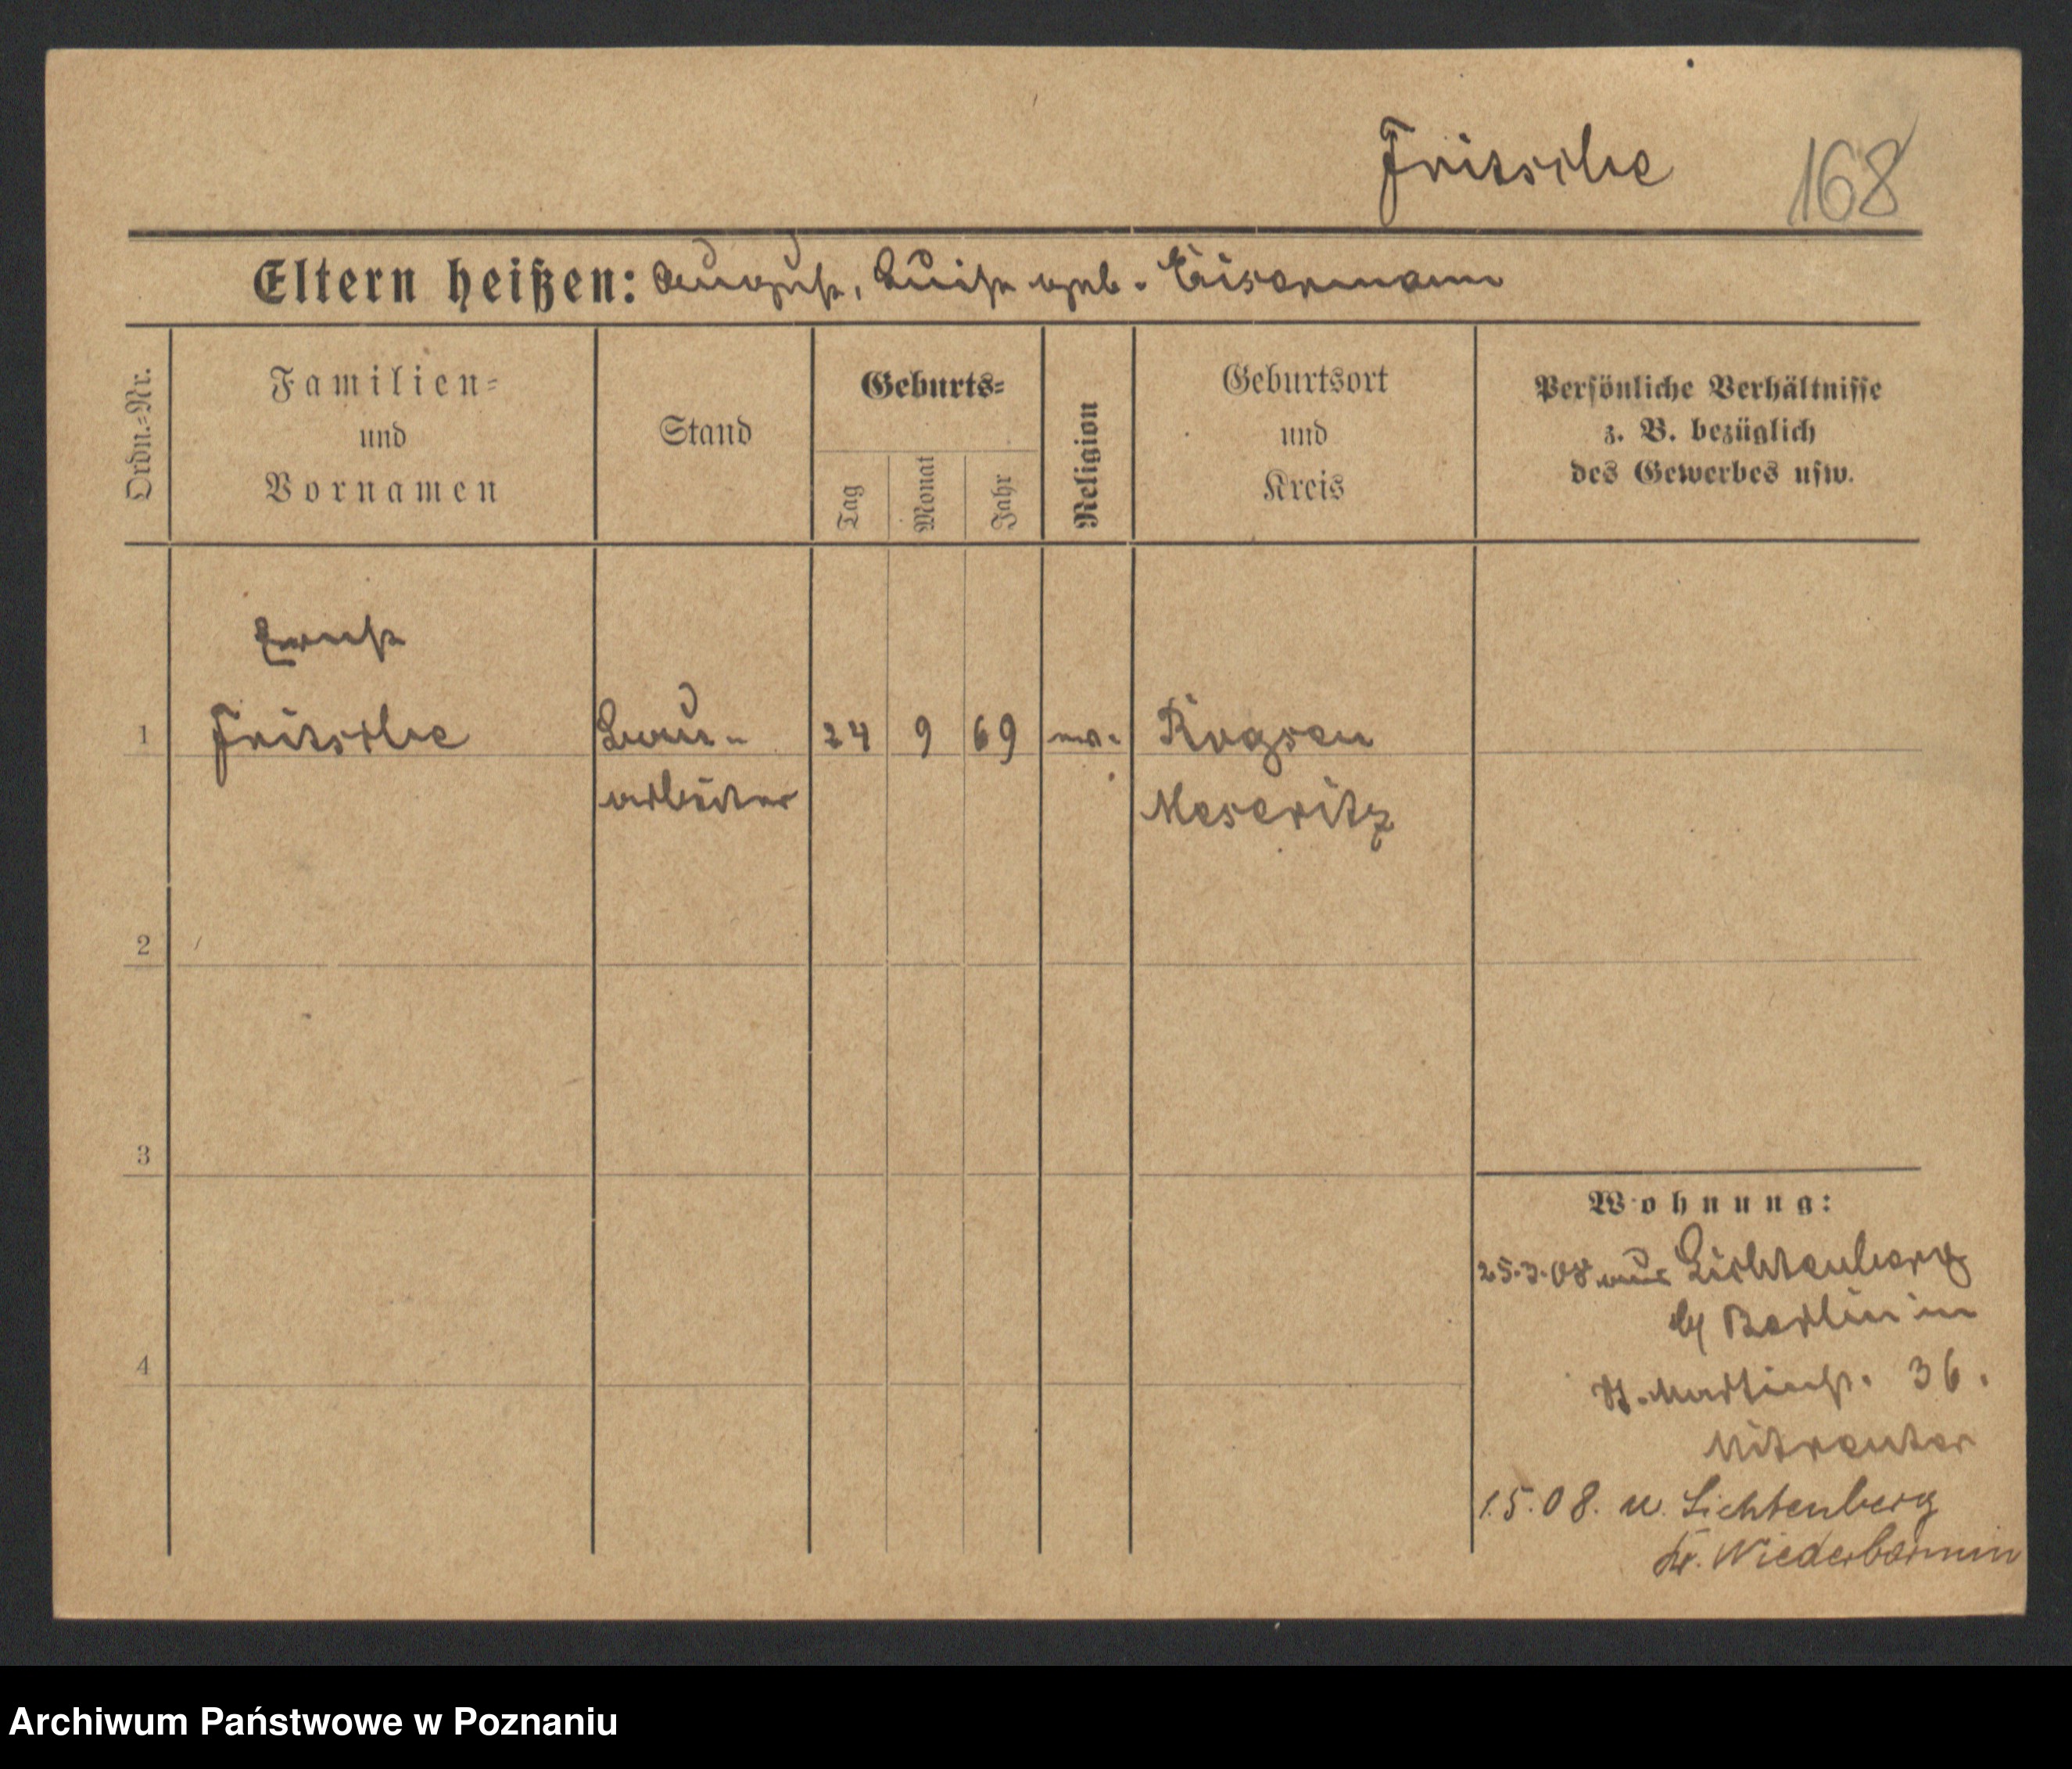 Fritsche 168
Eltern heißen: August, Luise geb. Eisermann
Ordn.=Nr.
Familien=
und
Vornamen
Stand
Geburts=
Tag
Monat
Jahr
Religion
Geburtsort
und
Kreis
Persönliche Verhältnisse
z. B. bezüglich
des Gewerbes usw.
Ernst
1 Fritsche Bau- 24 9 69 Rogsen
arbeiter Meseritz
2
3
4
Wohnung:
25.3.08 aus Lichtenberg
b/ Berlin in
St. Martinst. 36.
1.5.08. n. Lichtenberg
Kr. Niederbarnim
Archiwum Państwowe w Poznaniu